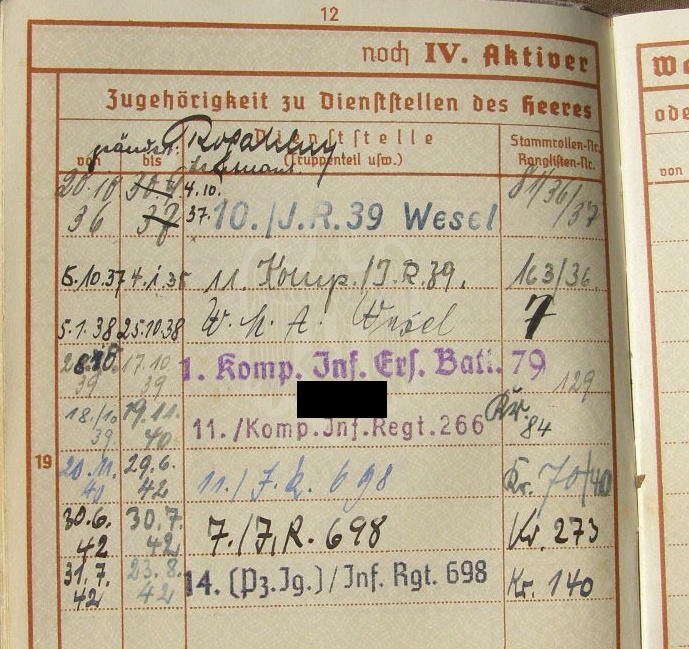 12
noch IV. Aktiver
Zugehörigkeit zu Dienststellen des Heeres
geändert:
von bis Dienststelle (Truppenteil usw.) Stammrollen-Nr. Ranglisten-Nr.
20.10 36 30.9 38 4.10. 37. 10./J.R.39 Wesel 81/36/37
5.10.37 4.1.38 11. Komp./J.R.39. 163/36.
5.1.38 25.10.38 W.M.A. Wesel 7
39 17.10 39 1. Komp. Inf. Ers. Batl. 79 129
18./10 39. 19.11. 40 11./Komp.Inf.Regt.266 Kr. 84
19 20.11. 40 29.6. 42 11./J.R. 698 Kr. 70/40
30.6. 42 30.7. 42 7./J.R. 698 Kr. 273
31.7. 42 23.8. 42 14. (Pz.Jg.)/Inf. Rgt. 698 Kr. 140
ode
von